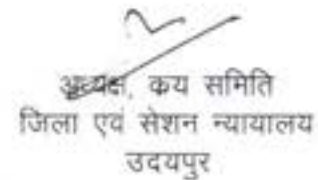 अध्यक्ष, कय समिति
जिला एवं सेशन न्यायालय
उदयपुर